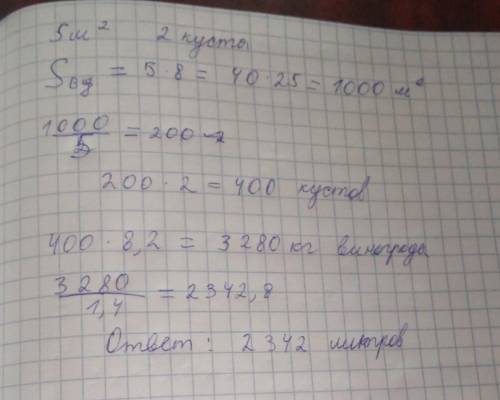 5м² 2 куста
Sвд = 5 · 8 = 40 · 25 = 1000 м²
1000/5 = 200
200 · 2 = 400 кустов
400 · 8,2 = 3280 кг винограда
3280/1,4 = 2342,8
Ответ: 2342 литров